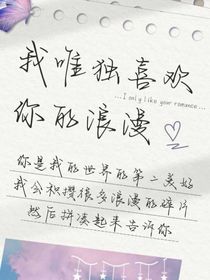 我唯独喜欢
...I only like your romance...
你的浪漫
你是我的世界的第二美好
我会积攒很多浪漫的碎片
然后拼凑起来告诉你